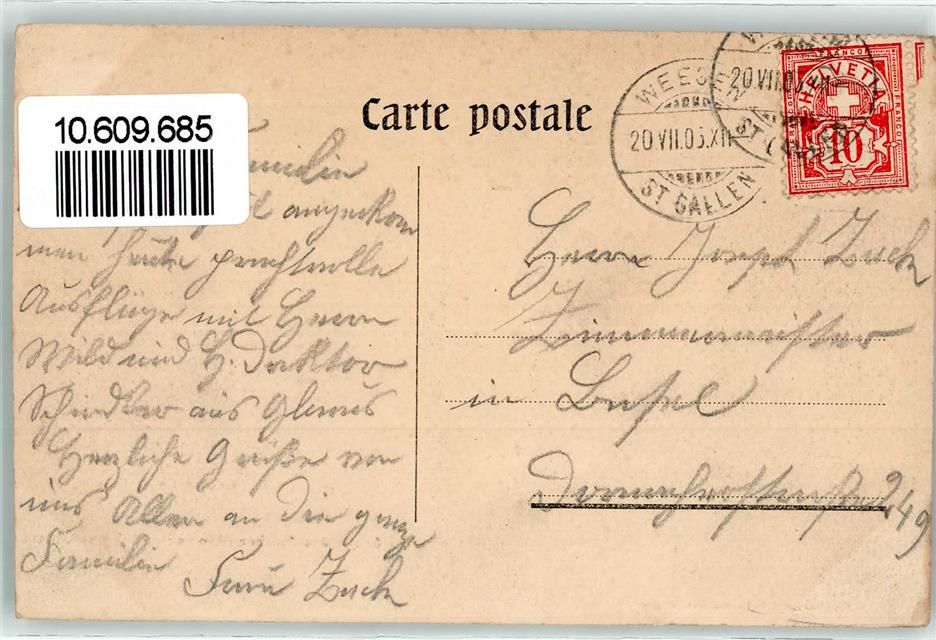 Carte postale
10.609.685
WEESEN
20.VII.05.XII
ST GALLEN
20.VII.05
ST GALLEN
FRANCO
HELVETIA
10
Familie
angekom
men heute prachtvolle
Ausflüge mit Herrn
Wild und H. Doktor
aus Glarus
Herzliche Grüße von
uns Allen an die ganze
Familie
Zuck
Herrn Joseph Zuck
Zimmermeister
in Basel
Dornacherstraße 249